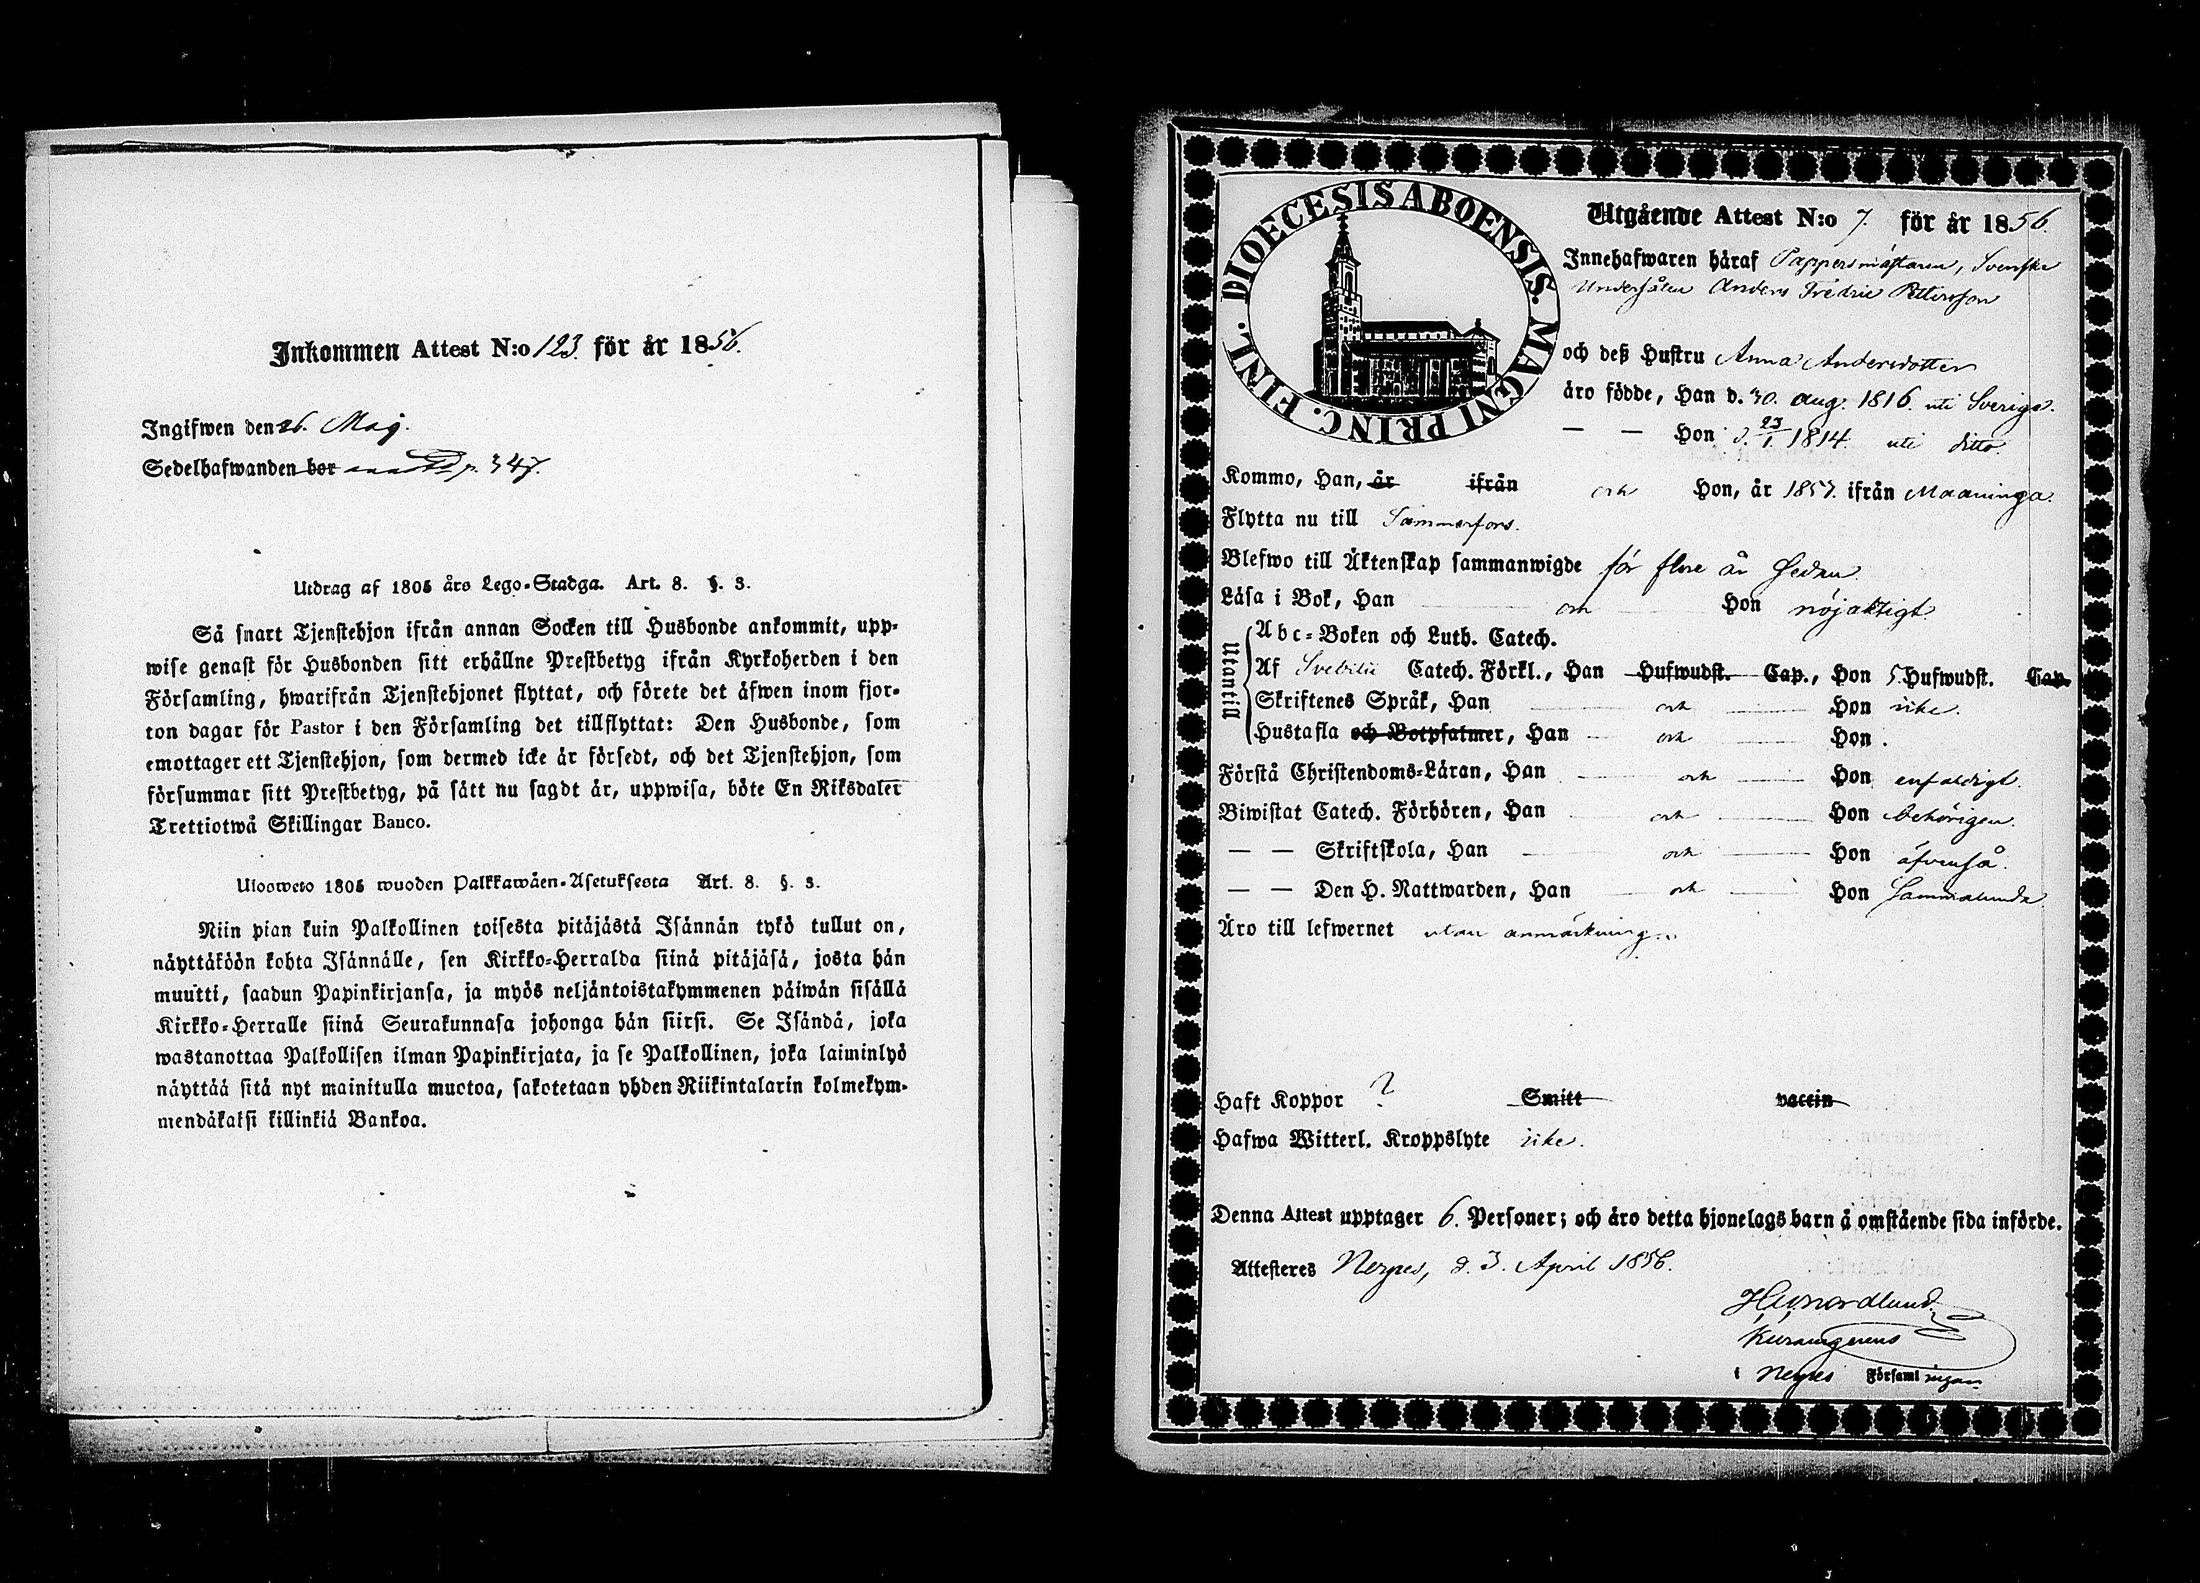 Inkommen Attest N:o 123. för år 1856.
Ingifwen den 26. Maj.
Sedelhafwanden bor p. 347.
Utdrag af 1805 års Lego-Stadga. Art. 8. §. 3.
Så snart Tjenstehjon ifrån annan Socken till Husbonde ankommit, upp-
wise genast för Husbonden sitt erhållne Prestbetyg ifrån Kyrkoherden i den
Församling, hwarifrån Tjenstehjonet flyttat, och förete det äfwen inom fjor-
ton dagar för Pastor i den Församling det tillflyttat: Den Husbonde, som
emottager ett Tjenstehjon, som dermed icke är försedt, och det Tjenstehjon, som
försummar sitt Prestbetyg, på sätt nu sagdt är, uppwisa, böte En Riksdaler
Trettiotwå Skillingar Banco.
Uloswето 1805 wuoden Palkkawäen-Asetuksesta Art. 8. §. 3.
Niin pian kuin Palkollinen toisesta pitäjästä Isännän tykö tullut on,
näyttäköön kohta Isännälle, sen Kirkko-Herralda siinä pitäjäsä, josta hän
muutti, saadun Papinkirjansa, ja myös neljäntoistakymmenen päiwän sisällä
Kirkko-Herralle siinä Seurakunnasa johonga hän siirsi. Se Isändä, joka
wastanottaa Palkollisen ilman Papinkirjata, ja se Palkollinen, joka laiminlyö
näyttää sitä nyt mainitulla muotoa, sakotetaan yhden Riikintalarin kolmekym-
mendäkaksi killinkiä Bankoa.
DIOECESIS ABOENSIS. MAGNI PRINC. FINL.
Utgående Attest N:o 7. för år 1856.
Innehafwaren häraf Pappersmästaren, Svenske
Undersåten Anders Fredric Pettersson
och deß Hustru Anna Andersdotter
äro födde, Han d. 30. Aug. 1816. uti Sverige.
— — Hon d. 23/1. 1814. uti ditto.
Kommo, Han, år ifrån och Hon, år 1857. ifrån Maaninga.
Flytta nu till Tammerfors.
Blefwo till Äktenskap sammanwigde för flere år sedan
Läsa i Bok, Han och Hon nöjaktigt.
Utantill
Abc-Boken och Luth. Catech.
Af Svebilii Catech. Förkl., Han Hufwudst. Cap., Hon 5 Hufwudst. Cap.
Skriftenes Språk, Han och Hon icke.
Hustafla och Botpsalmer, Han och Hon.
Förstå Christendoms-Läran, Han och Hon enfaldigt.
Biwistat Catech. Förhören, Han och Hon behörigen.
— — Skriftskola, Han och Hon äfvenså.
— — Den H. Nattwarden, Han och Hon Sammalunda
Äro till lefwernet utan anmärkning.
Haft Koppor ? Smitt vaccin
Hafwa Witterl. Kroppslyte icke.
Denna Attest upptager 6. Personer; och äro detta hjonelags barn å omstående sida införde.
Attesteres Nerpes, d. 3. April 1856.
Nordlund
i Nerpes Församlingar